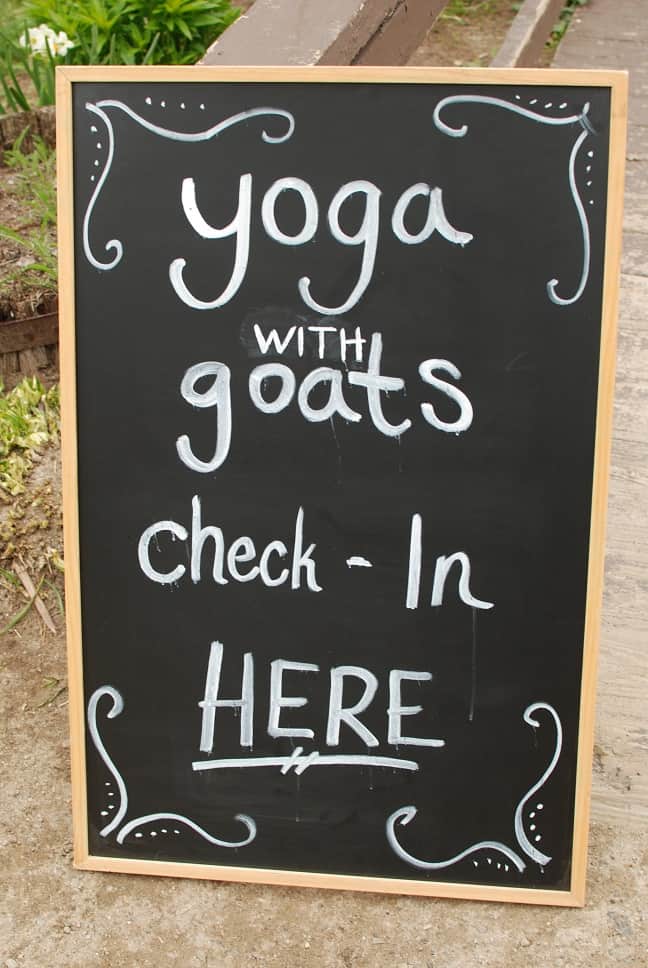 yoga
WITH
goats
check-In
HERE